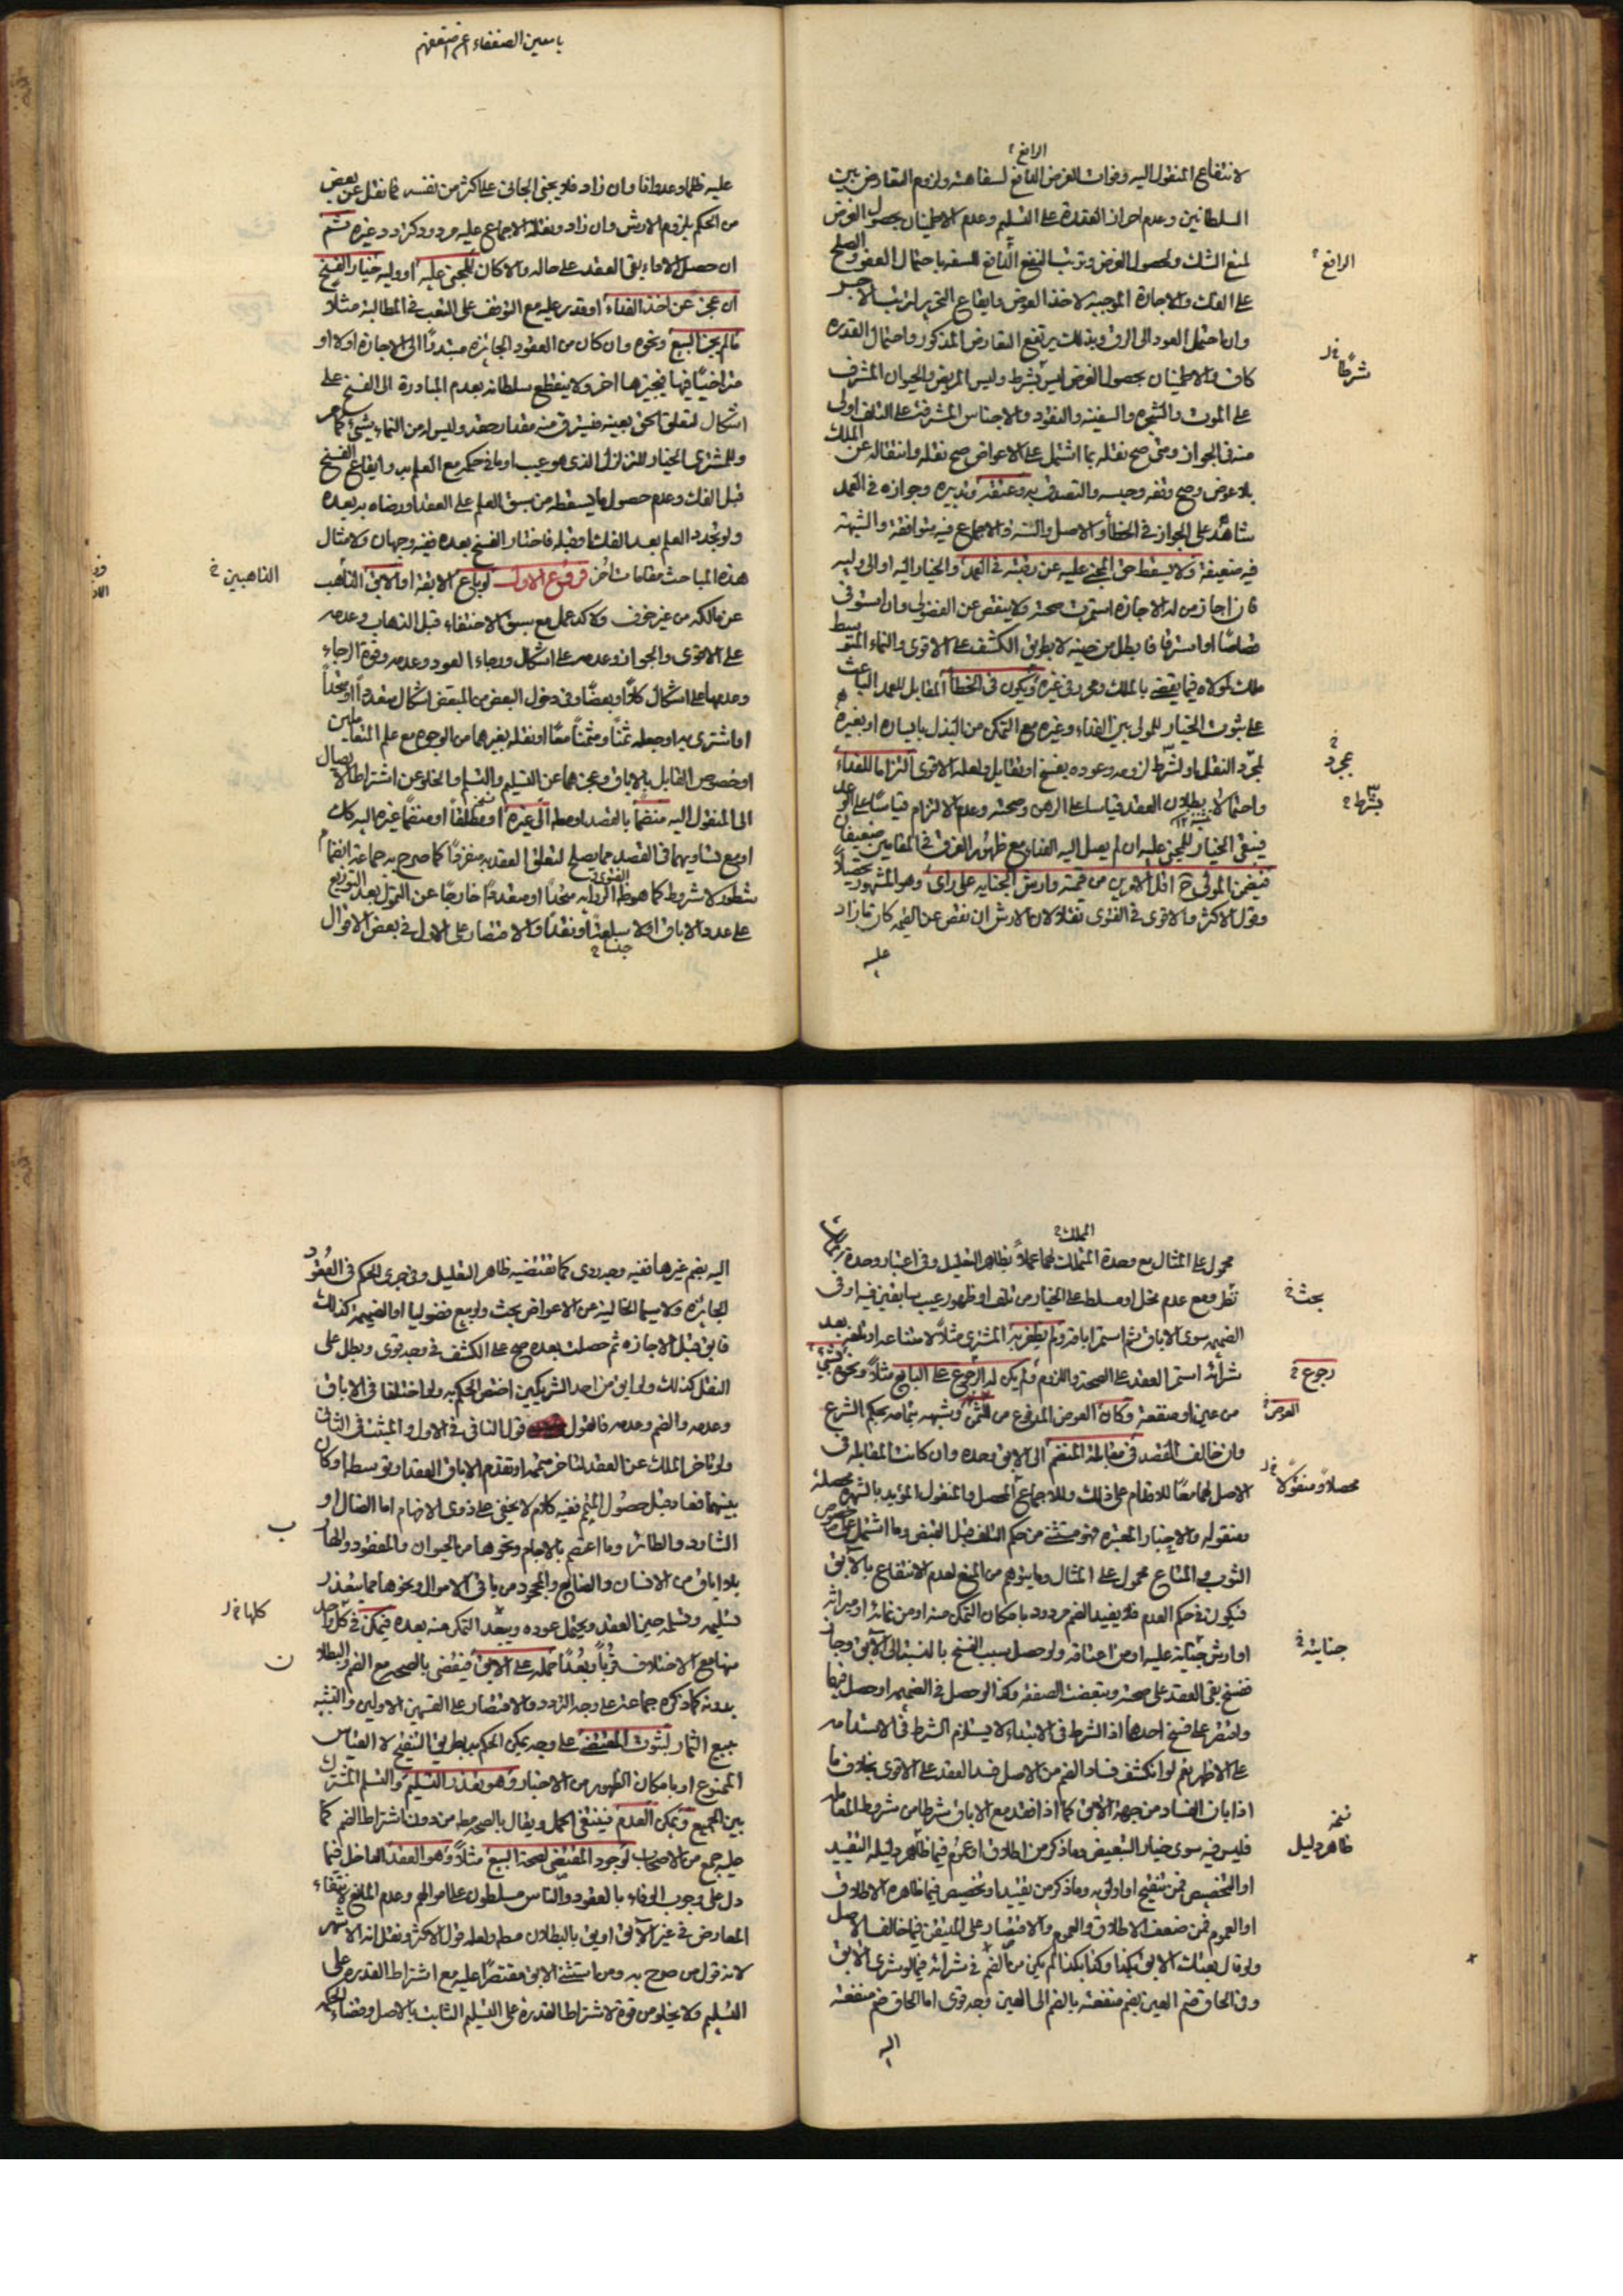 الرافع
لانتفاع المنقول اليه وفوات الغرض الدافع لسفاهته ولزوم التعارض بين
السلطانين وعدم احراز القدرة على التسليم وعدم الاطمينان بحصول الغرض
لمنع الشك وحصول الغرض وترتب النفع الدافع للسفه باحتمال العفو والصلح
الرافع
على الفك والاجازة الموجبة لاخذ العوض وايقاع التحرير لترتب الاجر
وان احتمل العود الى الرق وبذلك يرتفع التعارض المذكور واحتمال القدرة
شرطا
كاف والاطمينان بحصول الغرض ليس بشرط وليس المريض والحيوان المشرف
على الموت والشجر والسفينة والنقود والاجناس المشرفة على التلف اولى
منه في الجواز ومتى صح نقله بما اشتمل على الاعواض صح نقله وانتقاله عن الملك
بلا عوض وصح وقفه وحبسه والتصدق به وعتقه وتدبيره وجوازه في العمد
شاهد على الجواز في الخطأ والاصل والسنة والاجماع فيه متوافقة والشبهة
فيه ضعيفة ولا يسقط حق المجني عليه عن رقبته في العمد والخيار اليه او الى وليه
فان اجاز من له الاجازة استمرت صحته ولا ينقص عن الفضولي وان استوفى
قصاصا او استرقاقا بطل من حينه لا بطريق الكشف على الاقوى والنماء المتوسط
ملك لمولاه فيما يقضي بالملك ومجرد في غيره ويكون في الخطأ المقابل للعمد الباعث
على ثبوت الخيار للمولى بين الفداء وغيره مع التمكن من البذل بايساره او بغيره
مجرد
لمجرد النقل او بشرط لزومه وعوده بفسخ او تقايل ولعله الاقوى التزاما للفداء
بشرط
واحتمالا بطلان العقد قياسا على الرهن وصحته وعدم الالتزام قياسا على
فيبقى الخيار للمجني عليه ان لم يصل اليه الفداء مع ظهور الفرق في المقامين ضعيفان
فيضمن المولى ح اقل الامرين من قيمته وارش الجناية على رأي وهو المشهور تحصيلا
وقول الاكثر والاقوى في الفتوى نقلا لان الارش ان نقص عن القيمة كان ما زاد
عليه
يا معين الضعفاء
عليه ظلما وعدوانا وان زاد فلا يجني الجاني على اكثر من نفسه فما نقل عن بعض
من الحكم بلزوم الارش وان زاد ونقله الاجماع عليه مردود كردود غيره ثم
ان حصل الاداء بقي العقد على حاله والا كان للمجني عليه او وليه خيار الفسخ
ان عجز عن اخذ الفداء او قدر عليه مع التوقف على التعب في المطالبة مثلا
ما لم يجز البيع ونحوه وان كان من العقود الجائزة مبتدئا الى الاجازة اولا او
متراخيا فيها بخيرها اخر ولا ينقطع سلطانه بعدم المبادرة الى الفسخ على
اشكال لتعلق الحق بعينه فيسترق منه مقدار حقه وليس له من النماء شيء كما مر
وللمشتري الخيار للتزلزل الذي هو عيب او ما في حكمه مع العلم به وايقاع الفسخ
قبل الفك وعدم حصول ما يسقطه من سبق العلم على العقد او رضاه به بعده
ولو تجدد العلم بعد الفك او قبله فاختار الفسخ بعده ففيه وجهان ولامثال
هذه المباحث مقامات اخر فروع الاول لو باع الابقة او الابق الذاهب
الذاهبين
عن مالكه من غير خوف ولا كد عمل مع سبق الاختفاء قبل الذهاب وعدمه
على الاقوى والجواز وعدمه على اشكال ورجاء العود وعدمه وقوة الرجاء
وعدمها على اشكال كلا او بعضا وفي دخول البعض من المبعض اشكال متعددا او متحدا
او اشترى به او جعله ثمنا ومثمنا معا او نقله بغيرهما من الوجوه مع علم المتعاملين
او خصوص القابل بالاباق وعجزهما عن التسليم والتسلم والخلو عن اشتراط الايصال
الى المنقول اليه منضما بالقصد او مط الى غيره او مطلقا او منضما غيره اليه كان
او مع تساويهما في القصد مما يصلح لتعلق العقد به منفردا كما صرح به جماعة انضمام
شطور لا شروط كما هو ظ الرواية متحدا او متعددا خارجا عن التمول بعد التوزيع
على عدد الاباق او لا مبلغا او نقدا والاقتصار على الاول في بعض الاقوال
الملك
محمول على المثال مع وحدة المتملك لهما عملا بظاهر التعليل وفي اعتبار وحدة
بحث
نظر ومع عدم مخل او مسلط على الخيار من تلف او ظهور عيب سابقين فيه او في
الضميمة سوى الاباق ثم استمر اباقه ولم يظفر به المشتري مثلا لامتناعه او لغيره بعد
رجوع
شرائه استمر العقد على الصحة واللزوم ولم يكن له الرجوع على البايع مثلا ونحوه بشيء
العوض
من عين او منفعة وكان العوض المدفوع من الثمن وشبهه بتمامه بحكم الشرع
وان خالف القصد في مقابلة المنضم الى الابق وحده وان كانت المقابلة في
محصلا ومنقولا
الاصل لهما معا للاقدام على ذلك وللاجماع المحصل والمنقول المؤيد بالشهرة محصله
ومنقوله والاخبار المعتبرة فهو مستثنى من حكم التلف قبل القبض وما اشتمل على خصوص
الثوب والمتاع محمول على المثال وما يتوهم من المنع لعدم الانتفاع بالابق
فيكون في حكم العدم فلا يفيد الضم مردود بامكان التمكن منه او من نمائه او ميراثه
جنايته
او ارش جناية عليه او من اعتاقه ولو حصل سبب الفسخ بالنسبة الى الابق وجاز
ففسخ بقي العقد على صحته وتبعضت الصفقة وكذا لو حصل في الضميمة او حصل فيهما
واقتصر على فسخ احدهما اذ الشرط في الابتداء لا يستلزم الشرط في الاستدامة
على الاظهر نعم لو انكشف فساد الضم من الاصل فسد العقد على الاقوى بخلاف ما
اذا بان الفساد من جهة الابق كما اذا فقد مع الاباق شرطا من شروط المعاملة
فليس فيه سوى خيار التبعيض وما ذكر من اطلاق او عموم فيما ظاهر دليله التقييد
نسخه
ظاهر دليل
او التخصيص فمن تنقيح او اولوية وما ذكر من تقييد او تخصيص فيما ظاهره الاطلاق
او العموم فمن ضعف الاطلاق والعموم والاقتصار على المتيقن فيما خالف الاصل
ولو قال بعتك الابق بكذا وكذا بكذا لم يكن من الضم في شرائه فيما لو شرى الابق
وفي الحاق ضم العين بضم منفعته بالضم الى العين وجه قوي اما الحاق ضم منفعته
اليه
اليه بضم غيرها ففيه وجه ردي كما تقتضيه ظاهر التعليل وفي جرى الحكم في العقود
الجائزة ولا سيما الخالية من الاعواض بحث ولو بيع فضوليا او الضميمة كذلك
فابق قبل الاجازة ثم حصلت بعده صح على الكشف في وجه قوي وبطل على
النقل كذلك ولو ابق من احد الشريكين اختص الحكم به ولو اختلفا في الاباق
وعدمه والضم وعدمه فالقول قول النافي في الاول والمثبت في الثاني
ولو تاخر الملك عن العقد لتاخر متممه او تقدم الاباق العقد او توسط او كان
بينهما فعاد قبل حصول المتمم ففيه كلام لا يخفى على ذوي الافهام اما الضال او
الشارد والطائر وما اعتصم بالاجام ونحوها من الحيوان والمفقود والهارب
بلا اباق من الانسان والضايع والمجحود من باقي الاموال ونحوها مما يتعذر
كلها
تسليمه وتسلمه حين العقد ويحتمل عوده ويتجدد التمكن منه بعده فيمكن في كل واحد
منها مع الاختلاف قربا وبعدا حمله على الابق فيقضى بالصحة مع الضم والبطلان
بدونه كما ذكره جماعة على وجه التردد والاقتصار على القسمين الاولين والتشبيه
ببيع الثمار لثبوت المقتضي على وجه يمكن الحكم به بطريق التنقيح لا القياس
الممنوع او بامكان الظهور من الاخبار وهو تعذر التسليم والتسلم المشترك
بين الجميع ويمكن العدم فينتفي الحمل ويقال بالصحة مط من دون اشتراط الضم كما
عليه جمع من الاصحاب لوجود المقتضي لصحة البيع مثلا وهو العقد الداخل فيما
دل على وجوب الوفاء بالعقود والناس مسلطون على اموالهم وعدم المانع لانتفاء
المعارض في غير الابق او يق بالبطلان مط ولعله قول الاكثر ونقل انه الاشهر
لانه قول من صرح به ومن استثنى الابق مقتصرا عليه مع اشتراط القدرة على
التسليم ولا يخلو من قوة لاشتراط القدرة على التسليم الثابت بالاصل وقضاء الحكمة